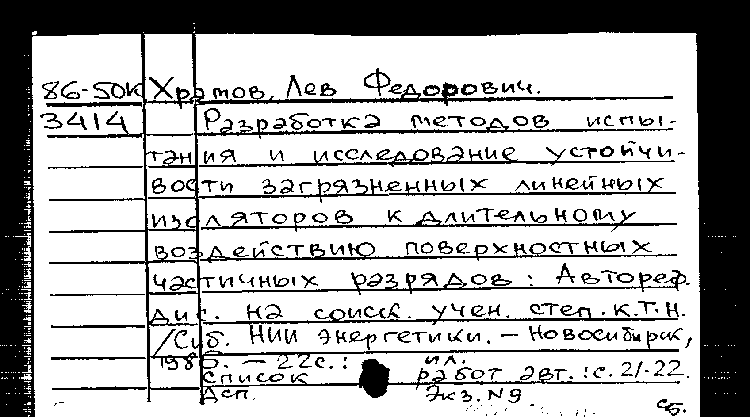 86-50к Храмов, Лев Федорович.
3414 Разработка методов испы-
тания и исследование устойчи-
вости загрязненных линейных
изоляторов к длительному
воздействию поверхностных
частичных разрядов : Автореф.
дис. на соиск. учен. степ. к.т.н.
/Сиб. НИИ энергетики. – Новосибирск,
1986. – 22с.: ил.
Список работ авт.: с. 21-22.
Дсп. Экз. №9
сб.